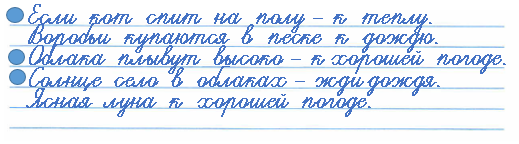 Если кот спит на полу – к теплу.
Воробьи купаются в песке к дождю.
Облака плывут высоко – к хорошей погоде.
Солнце село в облаках – жди дождя.
Ясная луна к хорошей погоде.